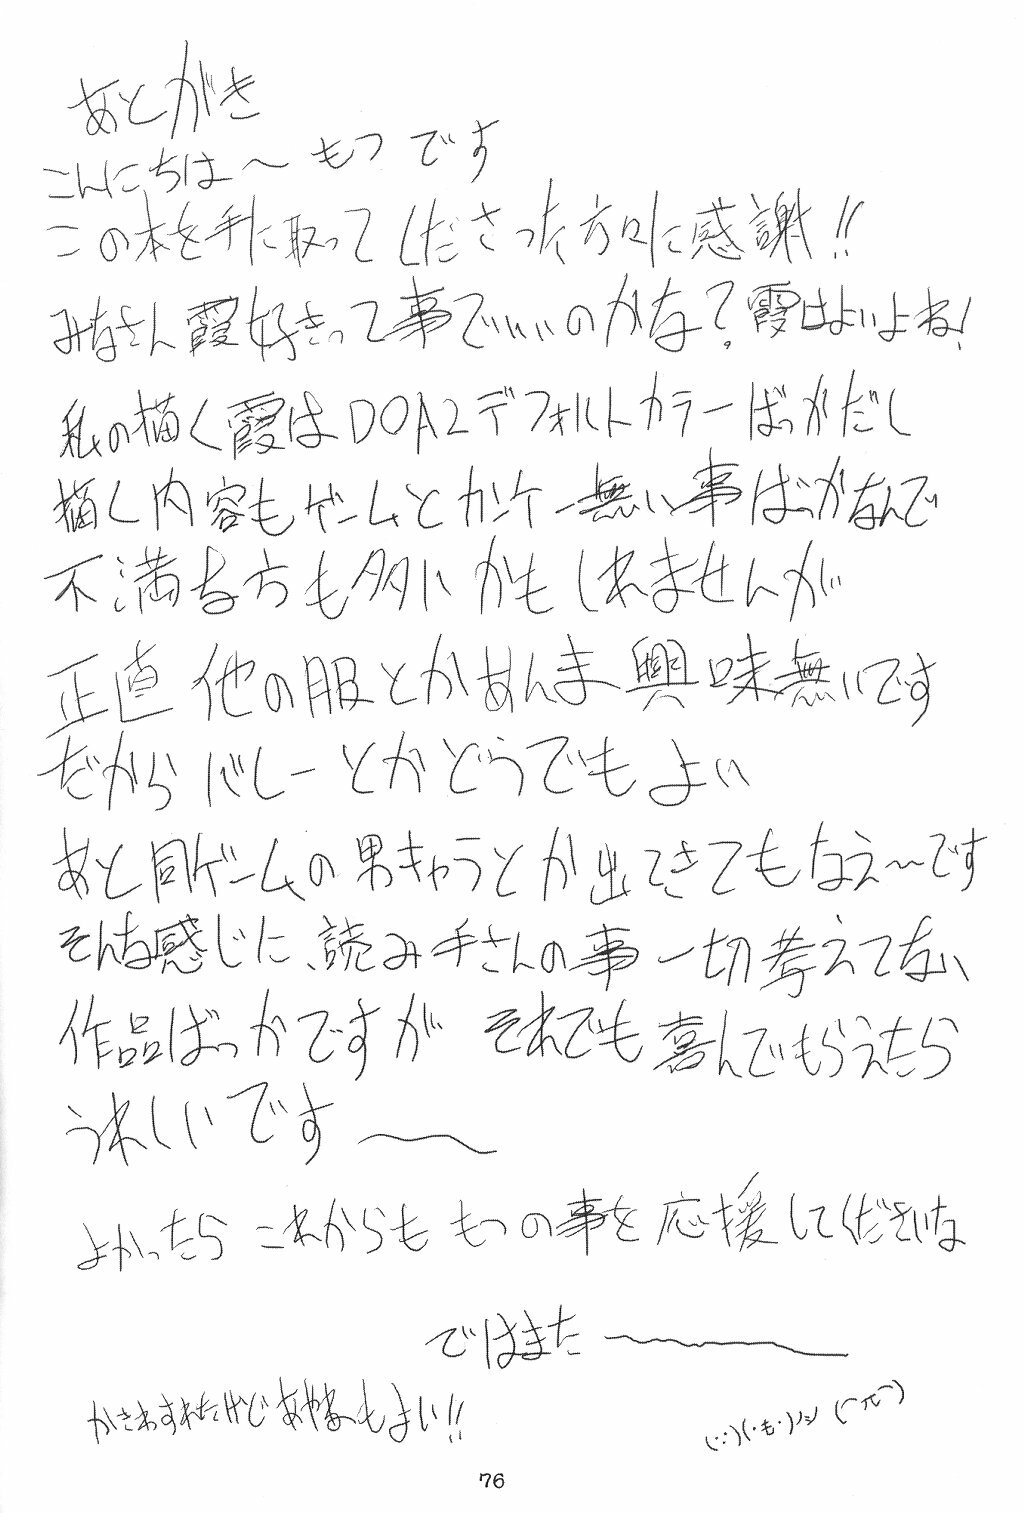 あとがき
こんにちは〜 もつ です
この本を手に取ってくださった方々に感謝!!
みなさん霞好きって事でいいのかな?霞はよいよね!
私の描く霞はDOA2デフォルトカラーばっかだし
描く内容もゲームとカンケー無い事ばっかなんで
不満な方も多いかもしれませんが
正直 他の服とかあんま興味無いです
だからバレーとかどうでもよい
あと同ゲームの男キャラとか出てきてもなえ〜です
そんな感じに、読み手さんの事一切考えてない
作品ばっかですが それでも喜んでもらえたら
うれしいです〜
よかったら これからも もつの事を応援してくださいな
ではまた〜
かきわすれたけどあやねもよい!!
76